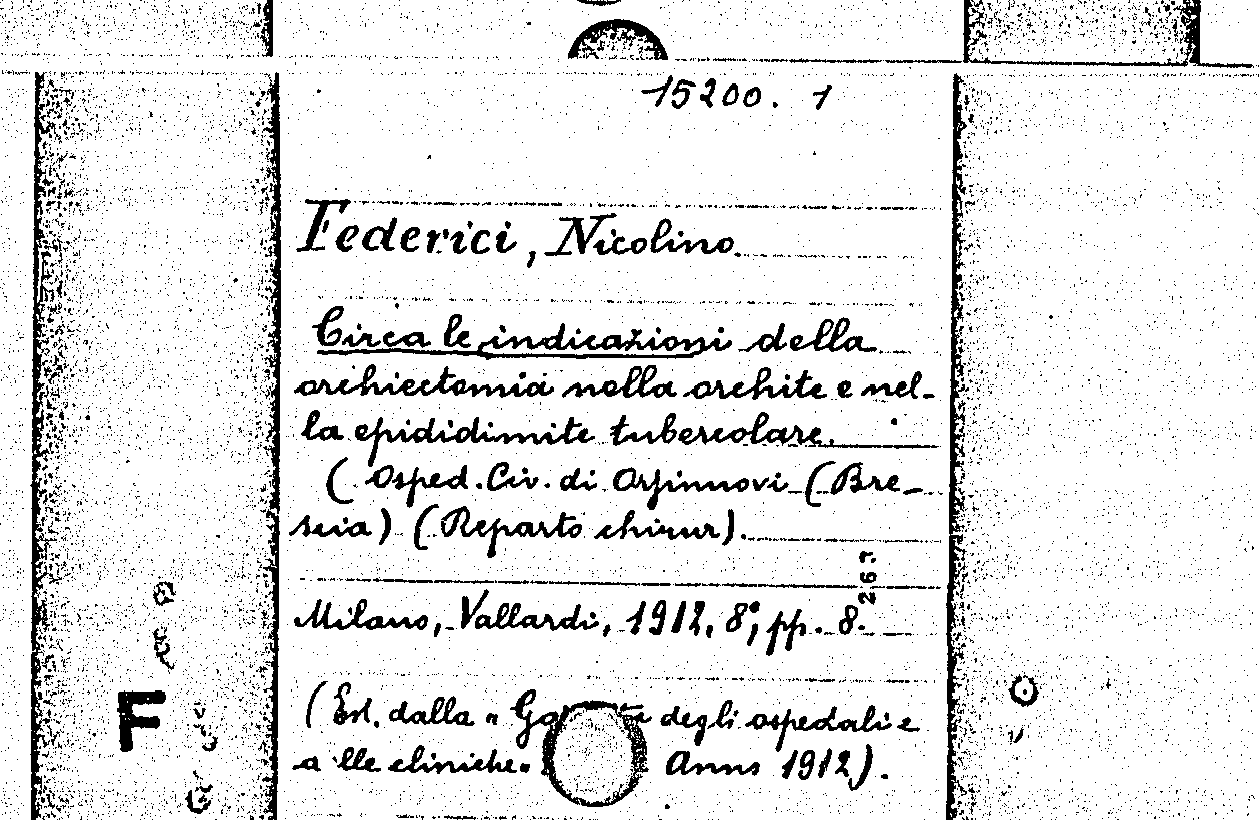 15200. 1
Federici, Nicolino.
Circa le indicazioni della
orchiectomia nella orchite e nel-
la epididimite tubercolare.
(Osped. Civ. di Orzinnovi (Bre-
scia) (Reparto chirur).
267.
Milano, Vallardi, 1912, 8°, pp. 8.
(Est. dalla « degli ospedali e
delle cliniche » Anno 1912).
F